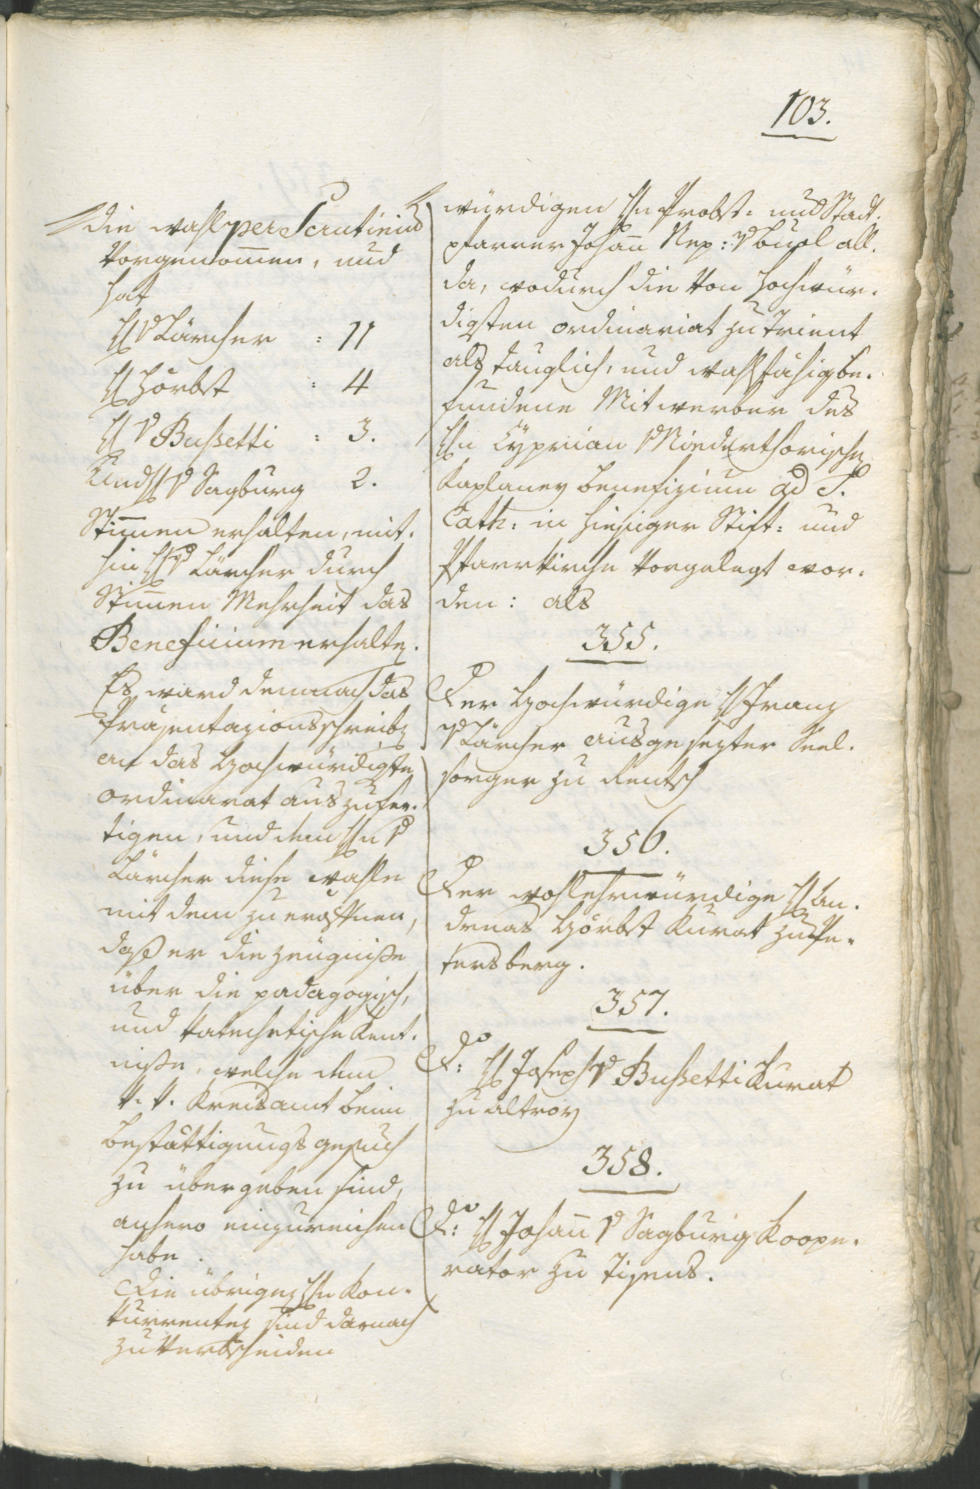 103.
die wahl per Scrutinium
vorgenommen, und
hat
H v Lärcher : 11
H Hörbst : 4
H v Bußetti : 3.
Und H v Sagburg 2.
Stimmen erhalten, mit-
hin H v Lärcher durch
Stimmen Mehrheit das
Beneficium erhalten.
Es ward demnach das
Präsentazionsschreiben
an das Hochwürdigste
ordinariat auszufer-
tigen, und dem Hn v
Lärcher diese wahl
mit dem zu eröffnen,
daß er die Zeugniße
über die padagogisch,
und katechetische Kent-
niße, welche dem
k. k. Kreisamt beim
bestättigungs gesuch
zu übergeben sind,
anhero einzureichen
habe.
Die übrigen Hn Kon-
kurrenten sind darnach
zu verbscheiden
würdigen Hn Probst- und Stadt-
pfarrer Johann Nep: v Buol all-
da, wodurch die von hochwür-
digsten ordinariat zu Trient
als tauglich, und wahlfähig be-
fundene Mitwerber des
Hn Cyprian v Niederthorische
Kaplaney benefizium ad S.
Cath: in hiesiger Stift- und
Pfarrkirche vorgelegt wor-
den: als
355.
Der Hochwürdige H Franz
v Lärcher ausgesezter Seel-
sorger zu Rentsch
356.
Der wohlehrwürdige H An-
dreas Hörbst Kurat zu Pe-
tersberg.
357.
D: H Joseph v Bußetti Kurat
zu altrey
358.
D: H Johann v Sagburg Koope-
rator zu Tisens.